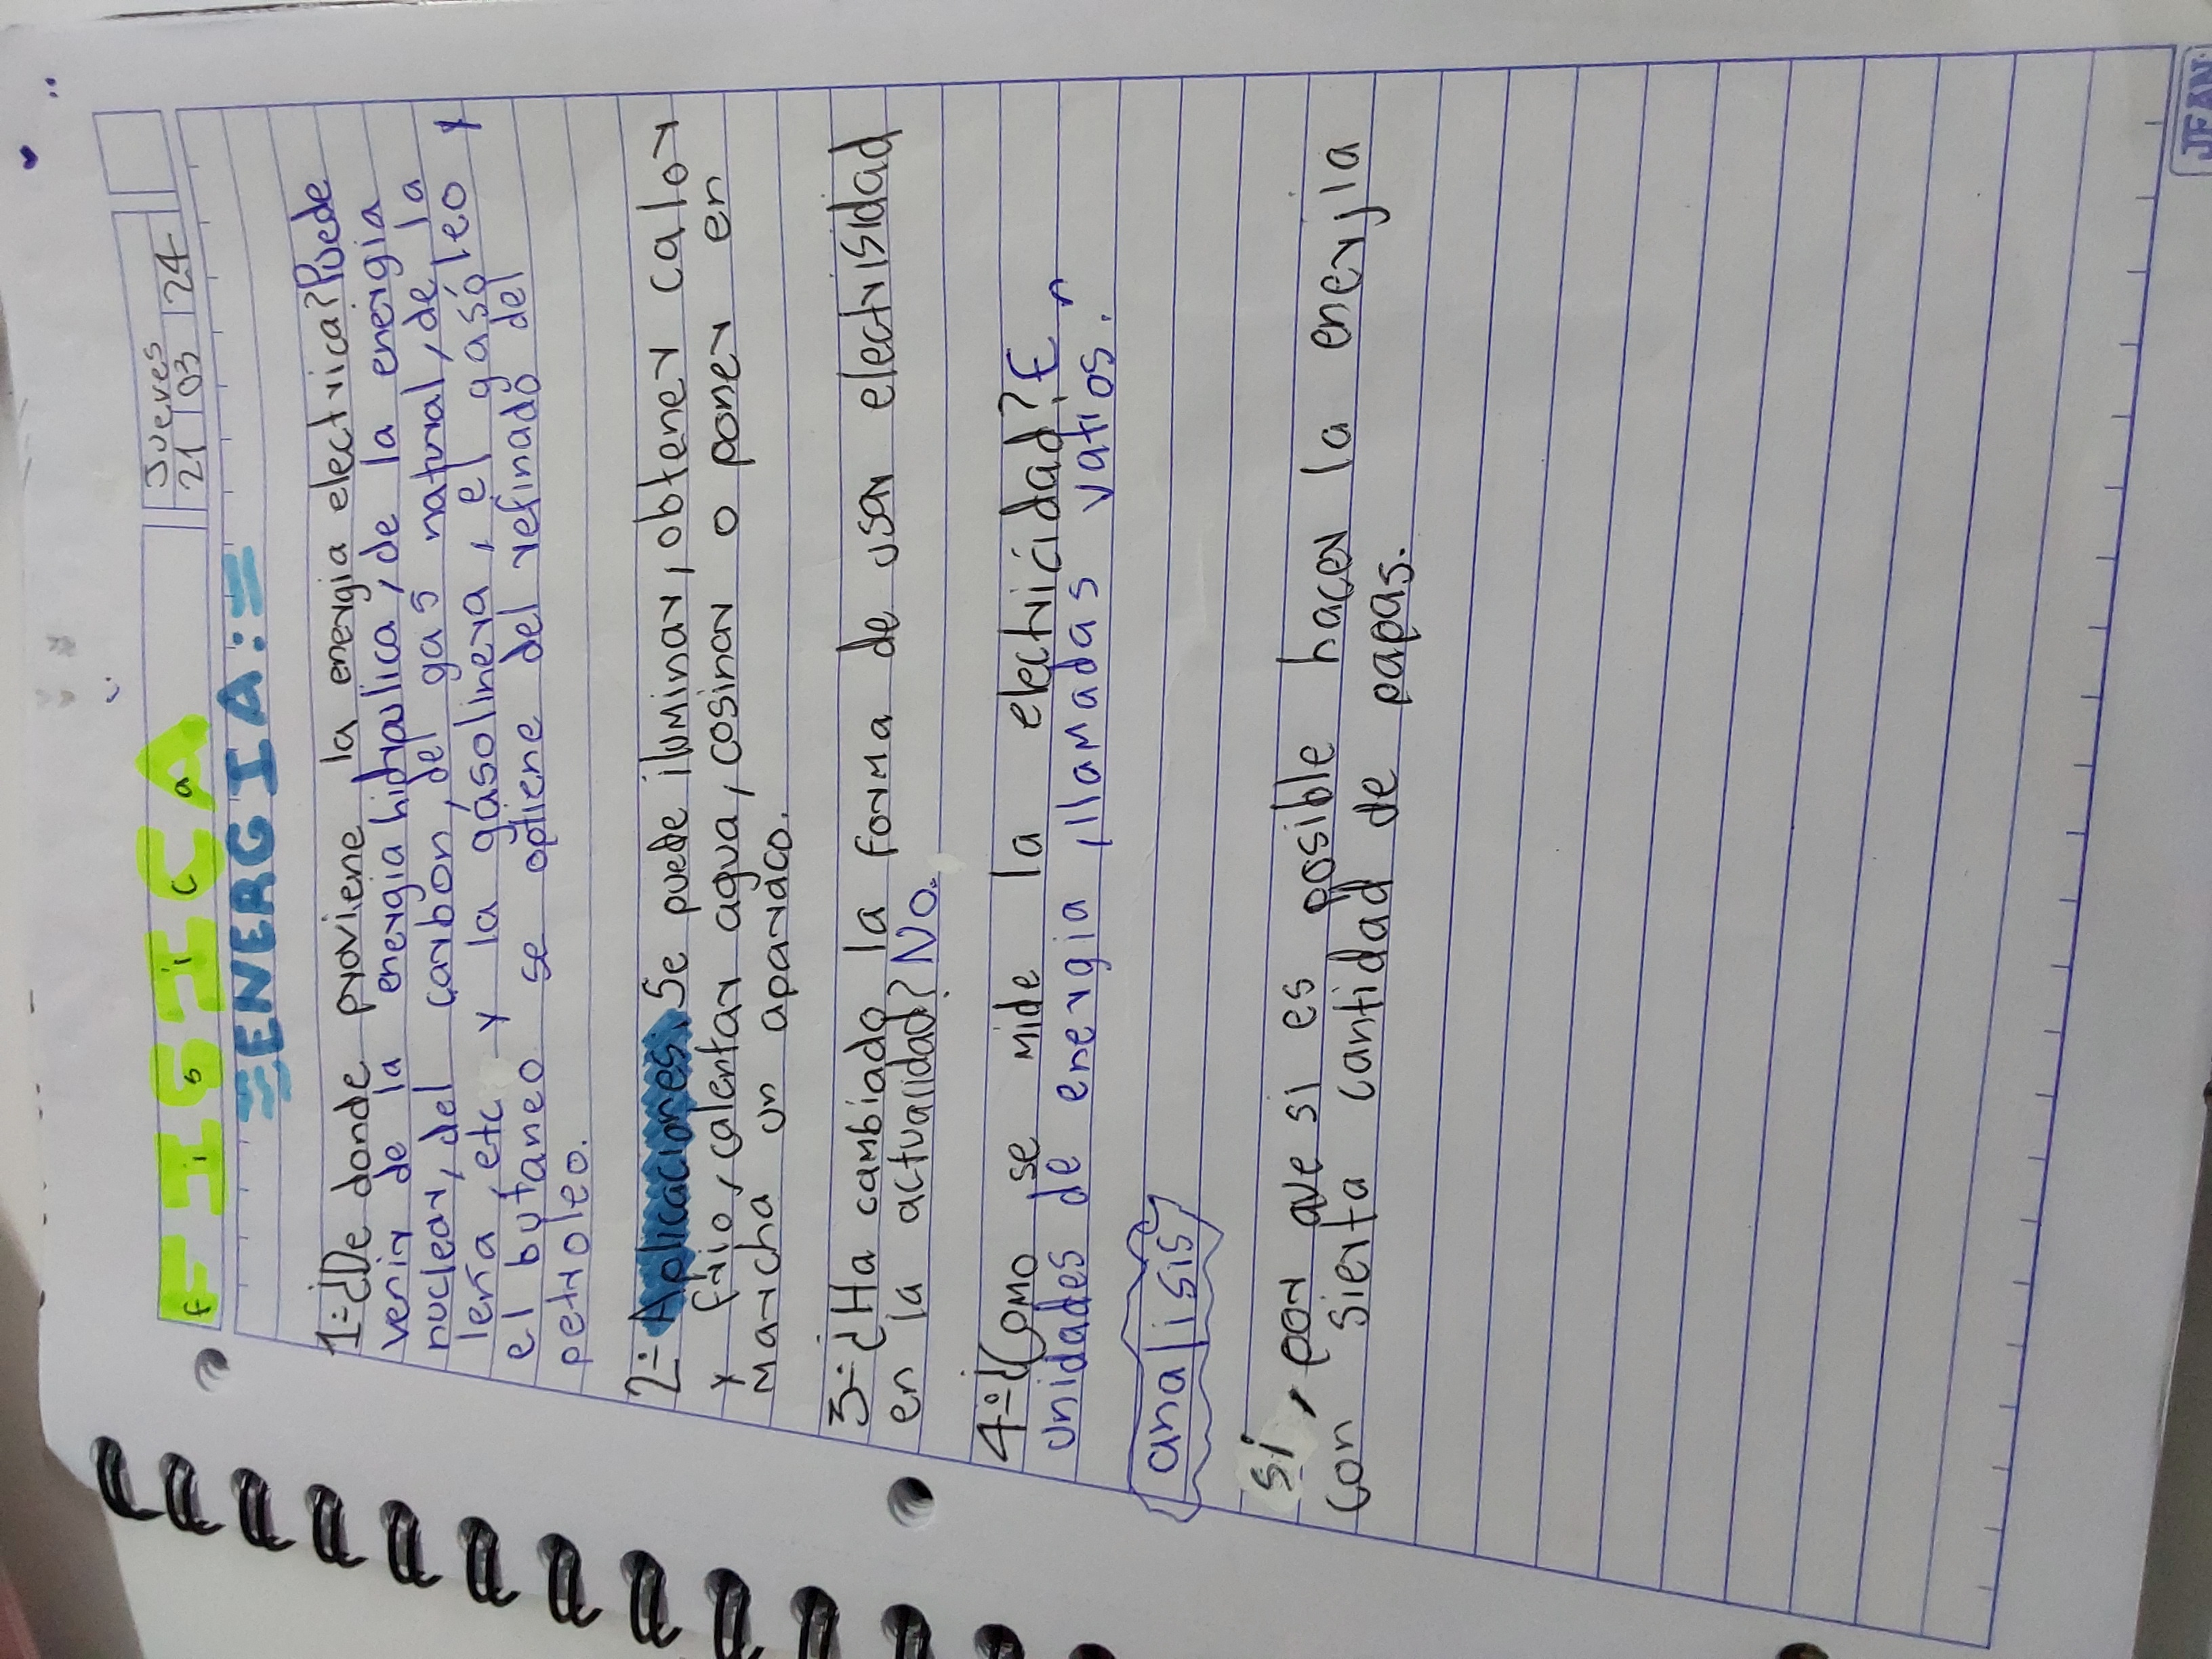 Jueves
21 03 24
FISICA
f i s i c a
ENERGIA:
1=¿De donde proviene la energia electrica? Puede
venir de la energia hidraulica, de la energia
nuclear, del carbón, del gas natural, de la
leña, etc y la gásolinera, el gasóleo y
el butaneo se optiene del refinado del
petroleo.
2= Aplicaciones Se puede iluminar, obtener calor
y frio, calentar agua, cosinar o poner en
marcha un aparaco.
3=¿Ha cambiado la forma de usar electrisidad
en la actualidad? No.
4=¿Como se mide la electricidad? En
unidades de energia, llamadas vatios.
analisis
si, por que si es posible hacer la enerjia
con sierta cantidad de papas.
JEAN